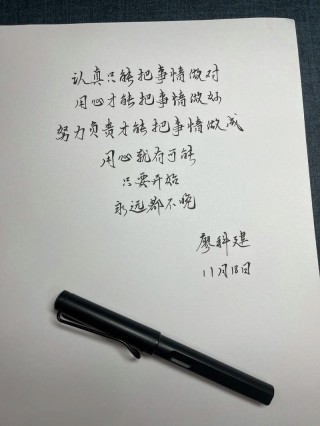 认真只能把事情做对
用心才能把事情做好
努力负责才能把事情做成
用心就有可能
只要开始
永远都不晚
廖科建
11月18日